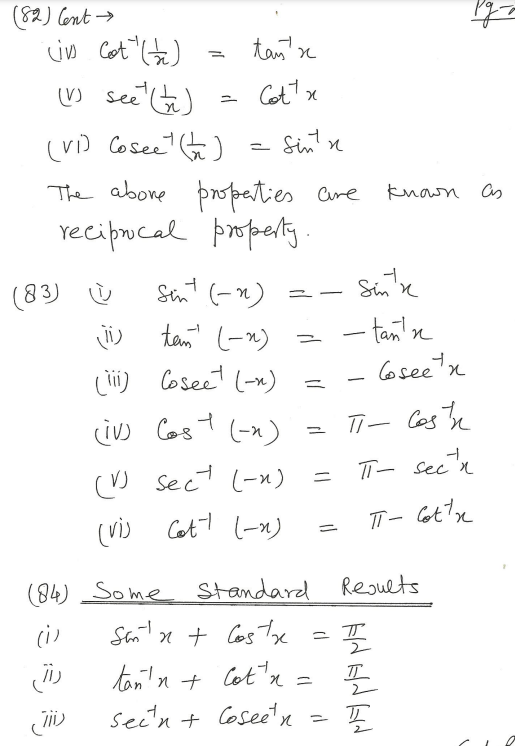 (82) Cont →
(iv) Cot⁻¹(1/x) = tan⁻¹x
(v) sec⁻¹(1/x) = Cot⁻¹x
(vi) Cosec⁻¹(1/x) = Sin⁻¹x
The above properties are known as
reciprocal property.
(83) (i) Sin⁻¹(-x) = - Sin⁻¹x
(ii) tan⁻¹(-x) = - tan⁻¹x
(iii) Cosec⁻¹(-x) = - Cosec⁻¹x
(iv) Cos⁻¹(-x) = π - Cos⁻¹x
(v) sec⁻¹(-x) = π - sec⁻¹x
(vi) Cot⁻¹(-x) = π - Cot⁻¹x
(84) Some Standard Results
(i) Sin⁻¹x + Cos⁻¹x = π/2
(ii) tan⁻¹x + Cot⁻¹x = π/2
(iii) sec⁻¹x + Cosec⁻¹x = π/2